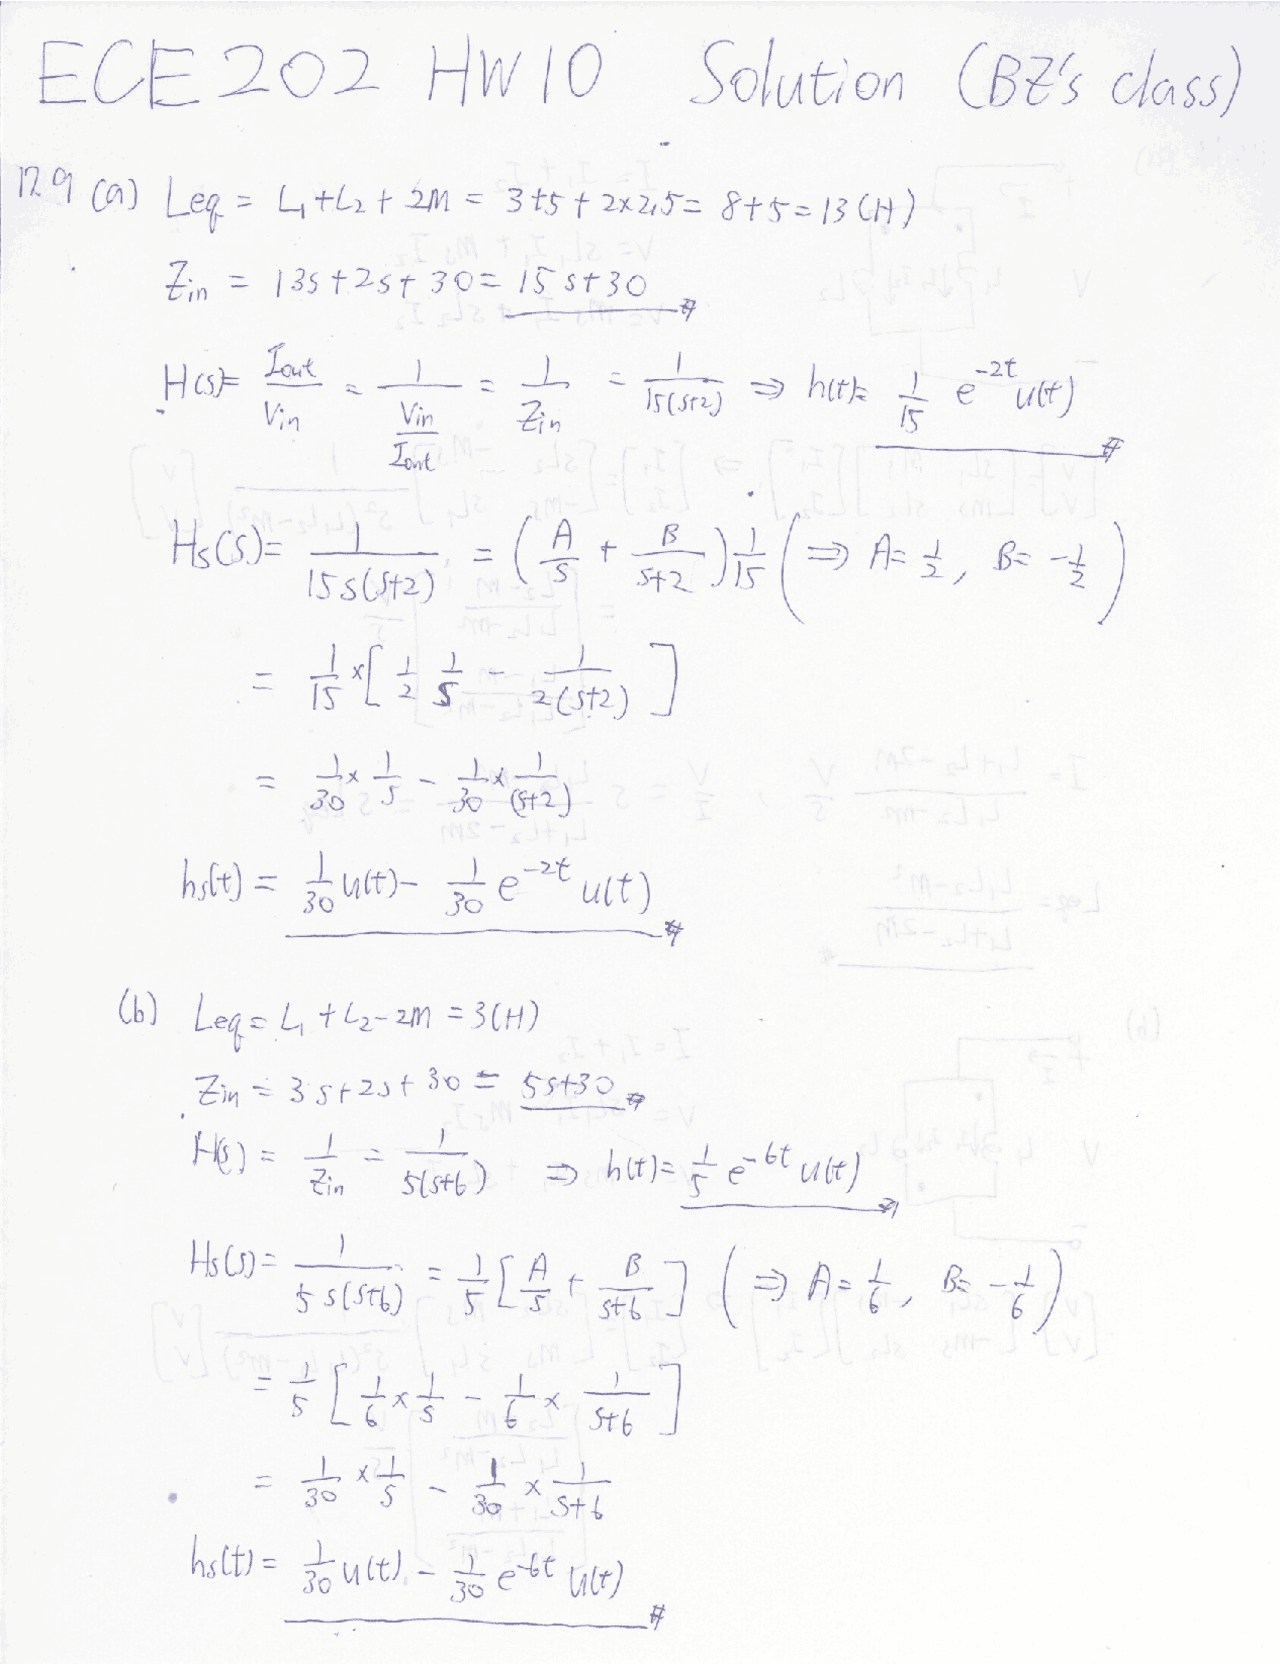 ECE 202 HW 10 Solution (BZ's class)
17.9 (a) Leq = L₁+L₂+2M = 3+5+2×2.5 = 8+5 = 13 (H)
Zin = 13s+2s+30 = 15s+30 #
H(s) = Iout/Vin = 1/(Vin/Iout) = 1/Zin = 1/15(s+2) ⇒ h(t) = 1/15 e^-2t u(t) #
Hs(s) = 1/15s(s+2) = (A/s + B/s+2) 1/15 (⇒ A = 1/2, B = -1/2)
= 1/15 × [1/2 1/s - 1/2(s+2)]
= 1/30 × 1/s - 1/30 × 1/(s+2)
hs(t) = 1/30 u(t) - 1/30 e^-2t u(t) #
(b) Leq = L₁+L₂-2M = 3(H)
Zin = 3s+2s+30 = 5s+30 #
H(s) = 1/Zin = 1/5(s+6) ⇒ h(t) = 1/5 e^-6t u(t) #
Hs(s) = 1/5s(s+6) = 1/5 [A/s + B/s+6] (⇒ A = 1/6, B = -1/6)
= 1/5 [1/6 × 1/s - 1/6 × 1/s+6]
= 1/30 × 1/s - 1/30 × 1/s+6
hs(t) = 1/30 u(t) - 1/30 e^-6t u(t) #